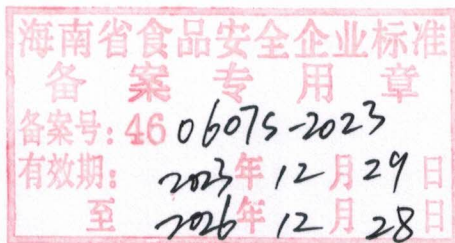 海南省食品安全企业标准
备案专用章
备案号：46 0607S-2023
有效期：2023年12月29日
至 2026年12月28日